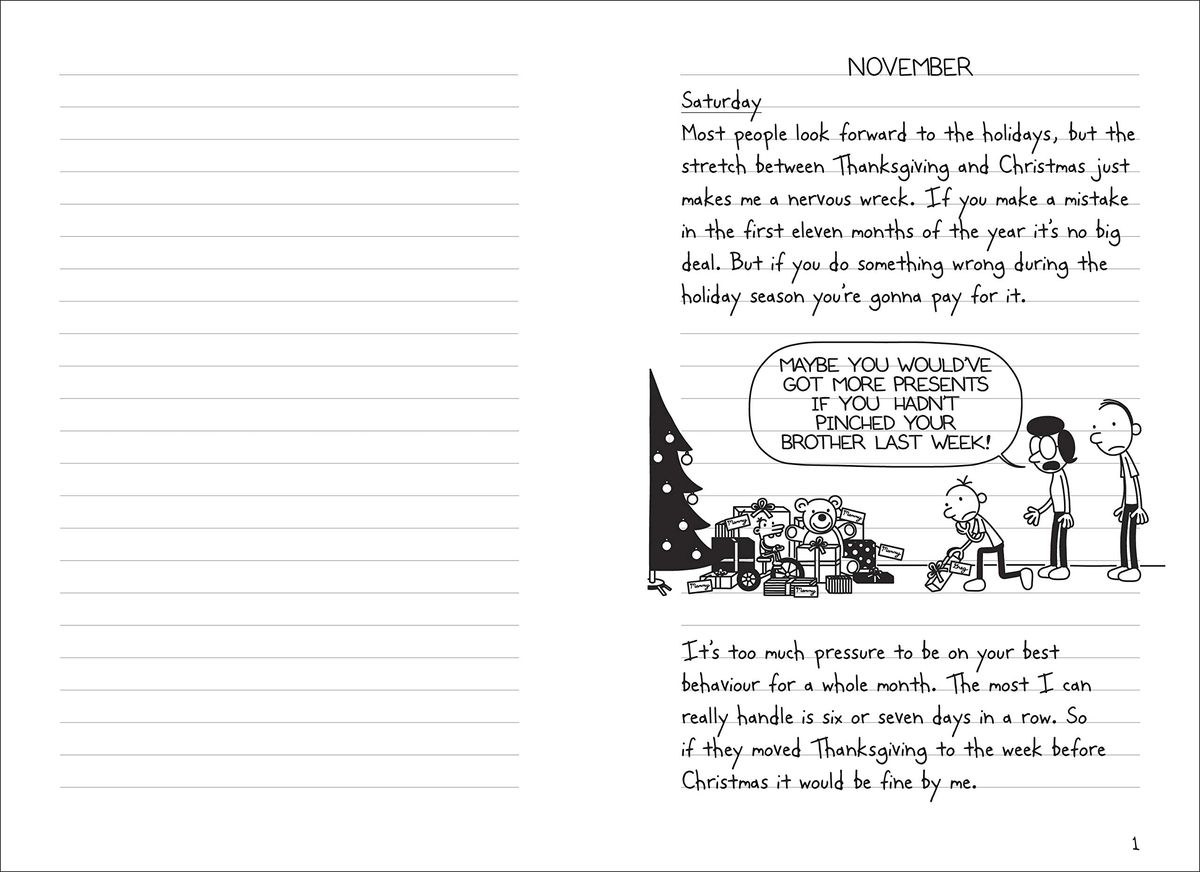 NOVEMBER
Saturday
Most people look forward to the holidays, but the
stretch between Thanksgiving and Christmas just
makes me a nervous wreck. If you make a mistake
in the first eleven months of the year it's no big
deal. But if you do something wrong during the
holiday season you're gonna pay for it.
MAYBE YOU WOULD'VE
GOT MORE PRESENTS
IF YOU HADN'T
PINCHED YOUR
BROTHER LAST WEEK!
Manny
Manny
Manny
Manny
Manny
Greg
It's too much pressure to be on your best
behaviour for a whole month. The most I can
really handle is six or seven days in a row. So
if they moved Thanksgiving to the week before
Christmas it would be fine by me.
1